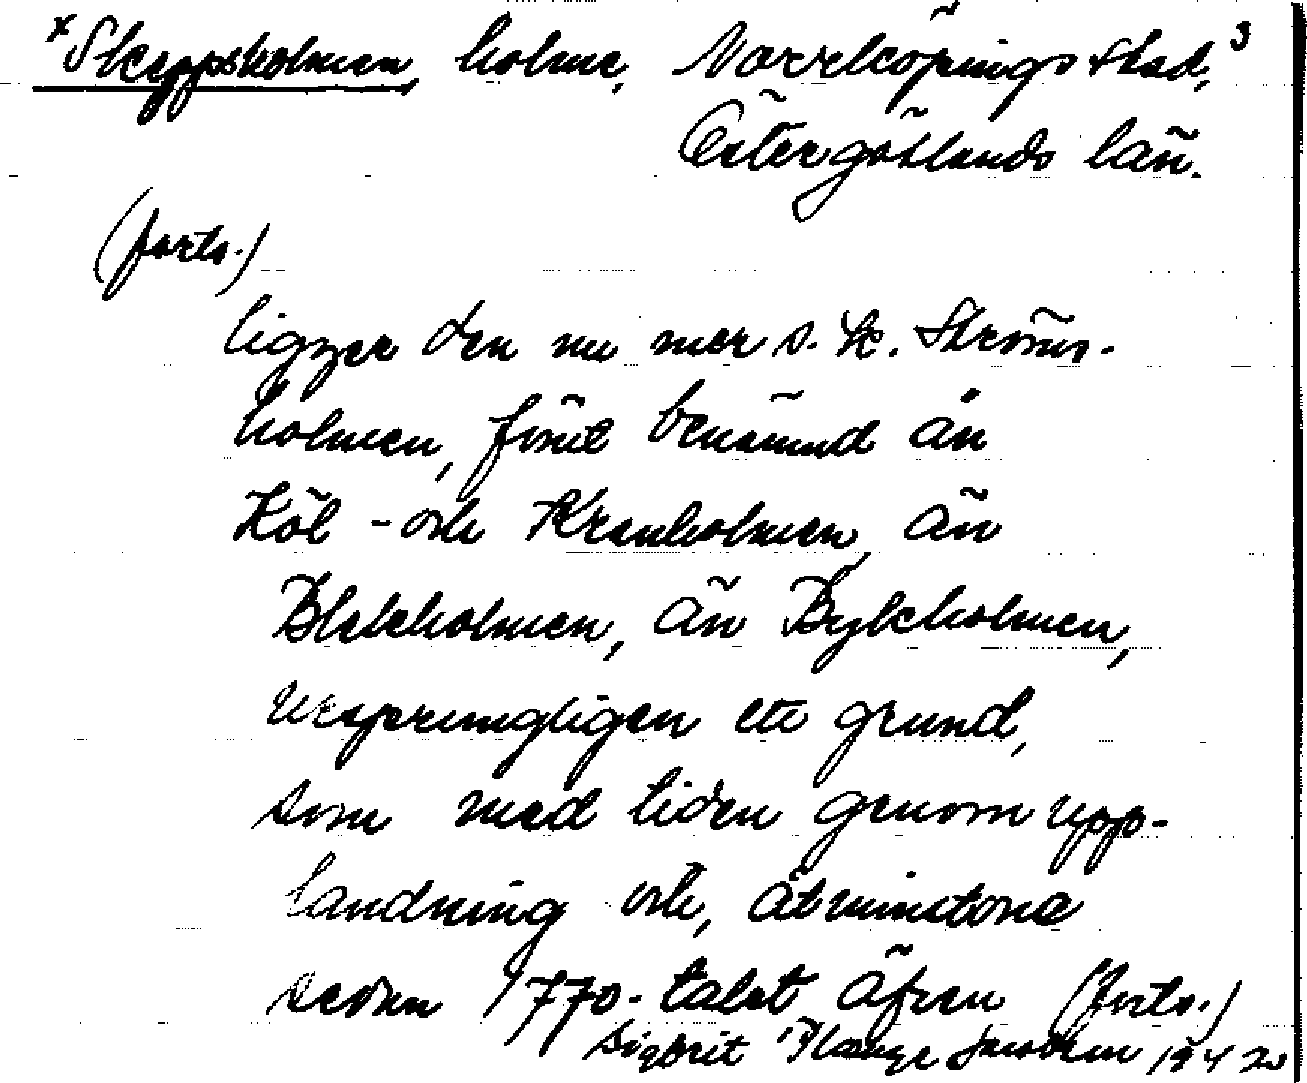 x Skeppsholmen, holme, Norrköpings stad, 3
Östergötlands län.
(forts.)
ligger den nu mer s. k. Ströms-
holmen, förut benämnd än
Köl- och Kranholmen, än
Blekholmen, än Bykholmen,
ursprungligen ett grund,
som med tiden genom upp-
landning och, åtminstone
sedan 1770-talet äfven (forts.)
Sigbrit Plænge Jacobson 1942